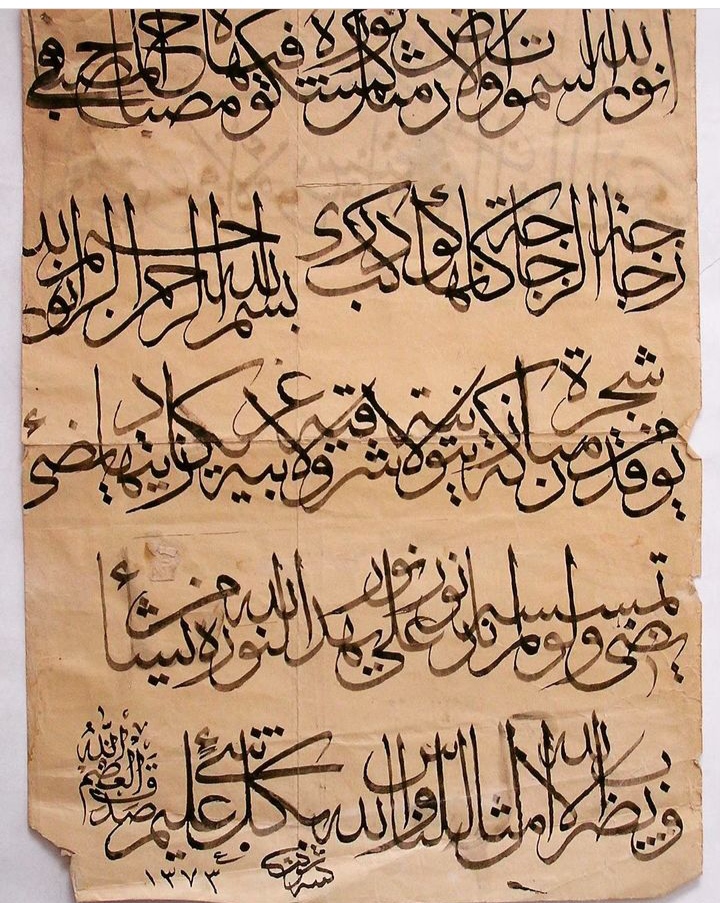 الله نور السموات والارض مثل نوره كمشكوة فيها مصباح المصباح في
زجاجة الزجاجة كانها كوكب درى بسم الله الرحمن الرحيم
يوقد من شجرة مباركة زيتونة لا شرقية ولا غربية يكاد زيتها يضئ
يضئ ولو لم تمسسه نار نور على نور يهد الله لنوره من يشاء
ويضرب الله الامثال للناس والله بكل شئ عليم
صدق الله العظيم
١٣٧٣